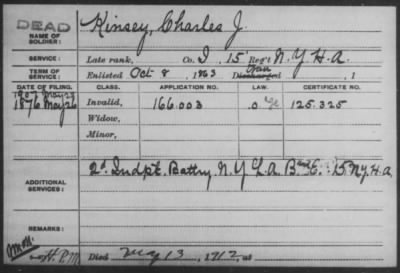 DEAD
NAME OF SOLDIER: Kinsey, Charles J.
SERVICE: Late rank, Co. I, 15 Reg't N.Y.H.A.
TERM OF SERVICE: Enlisted Oct 8, 1863 Discharged, 1
DATE OF FILING. CLASS. APPLICATION NO. LAW. CERTIFICATE NO.
1907 May 27
1876 May 26 Invalid, 166.003 125.325
Widow,
Minor,
ADDITIONAL SERVICES: 2d Indpt. Battry N.Y. L.A. E. 15 N.Y.H.A.
REMARKS:
Died May 13, 1912, at